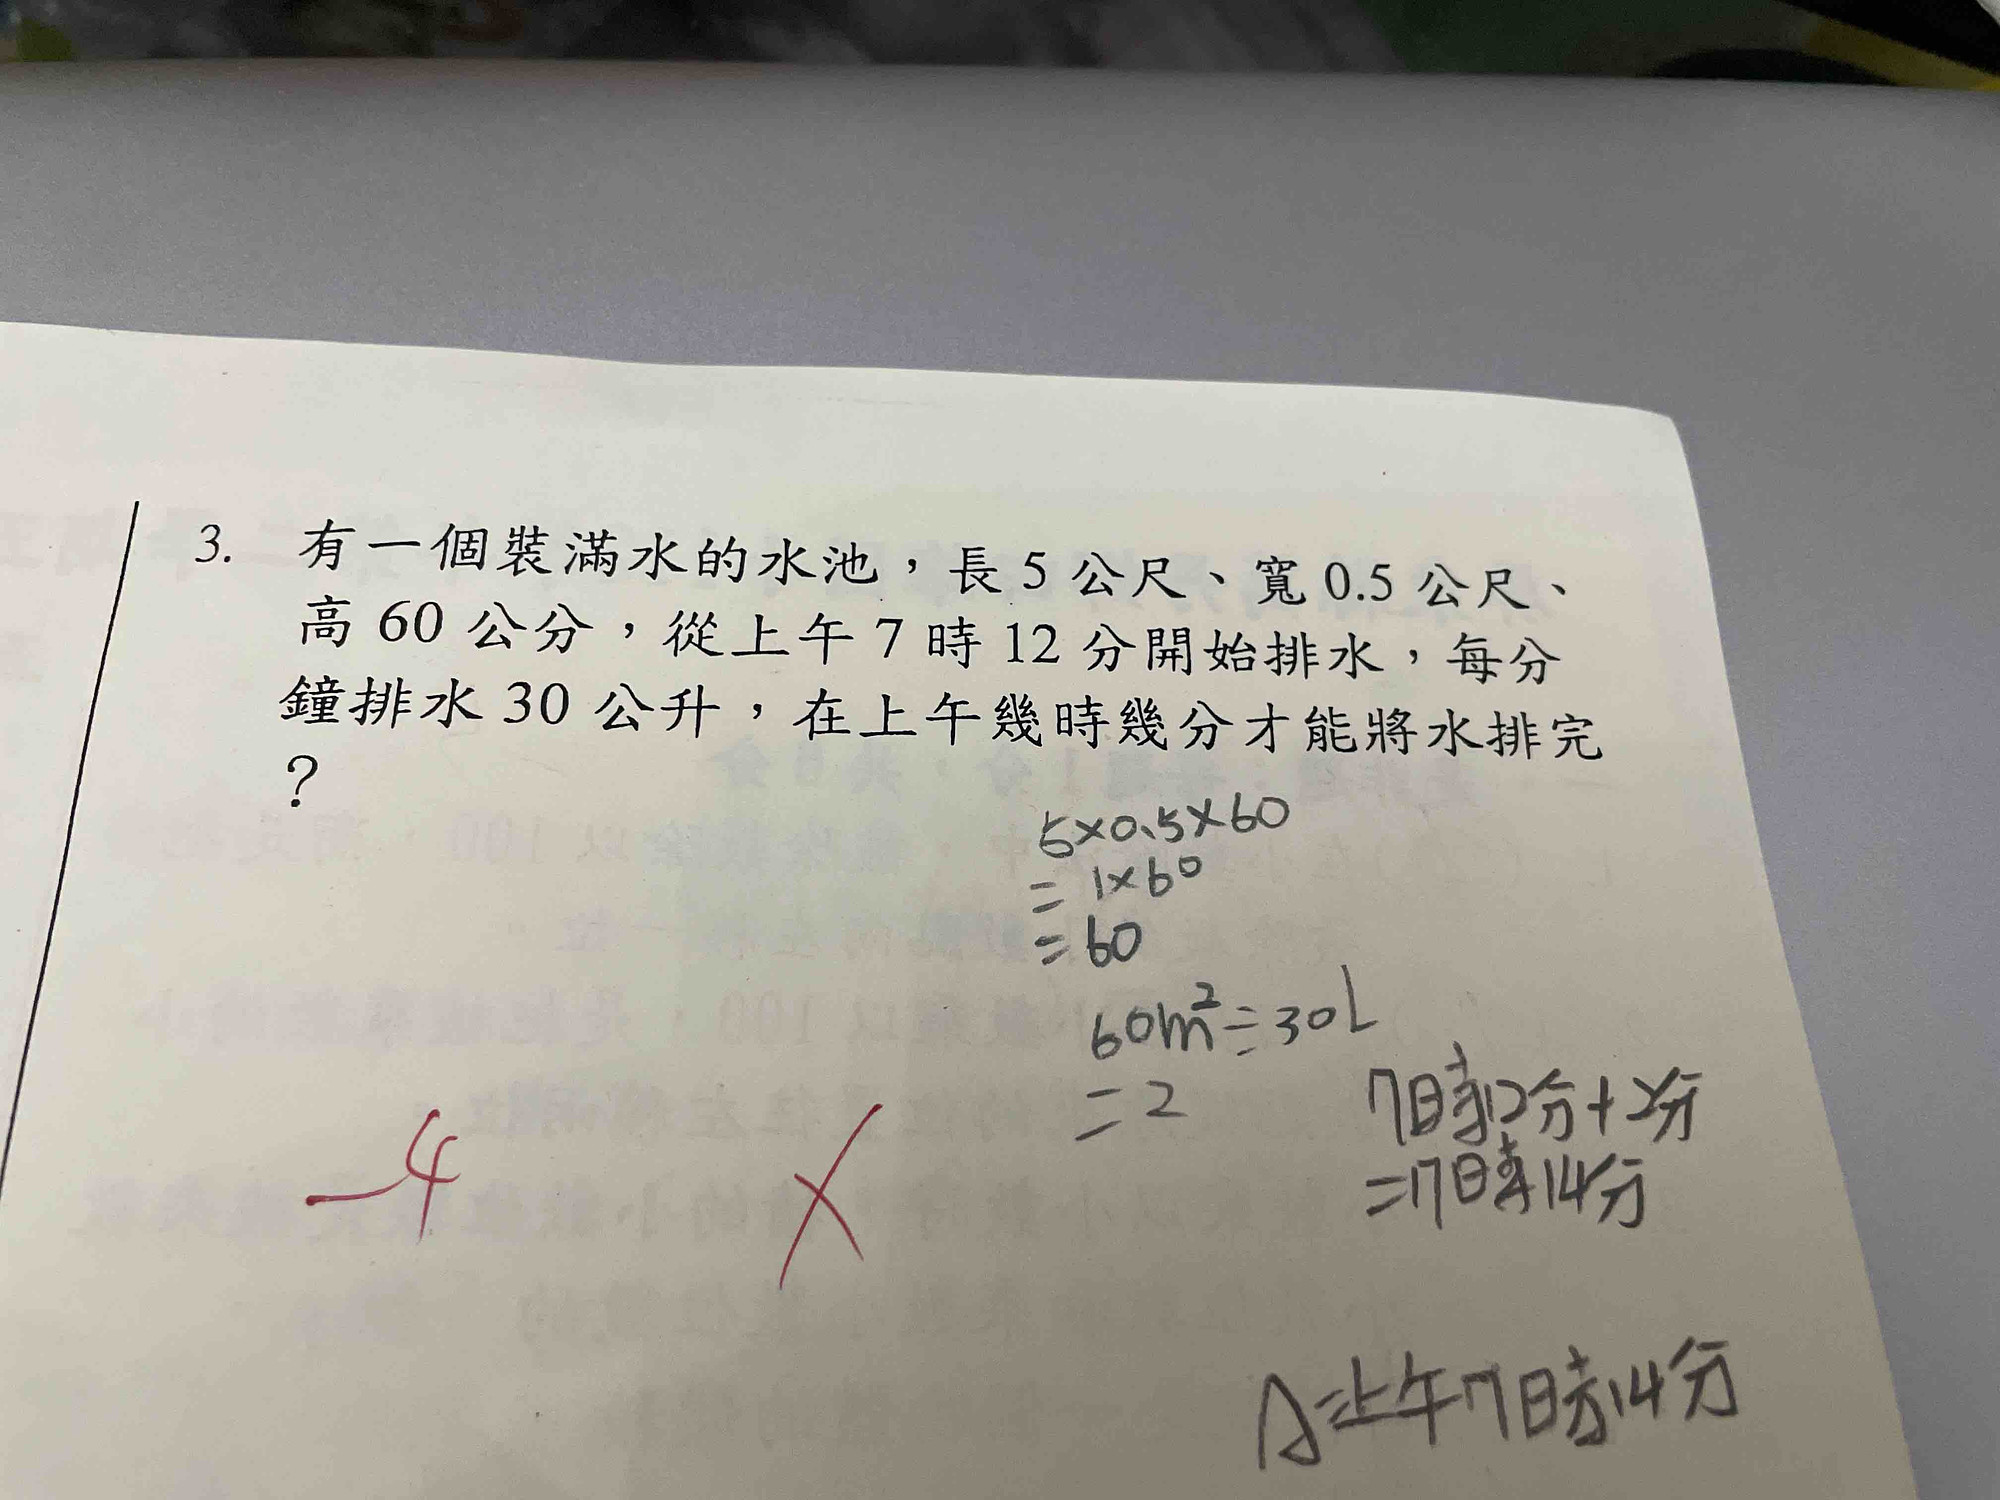 3. 有一個裝滿水的水池，長 5 公尺、寬 0.5 公尺、
高 60 公分，從上午 7 時 12 分開始排水，每分
鐘排水 30 公升，在上午幾時幾分才能將水排完
？
5×0.5×60
=1×60
=60
60m²÷30L
=2
7時12分+2分
=7時14分
-4
A=上午7時14分